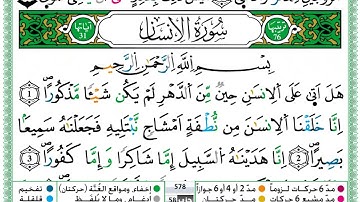 ترتيبها 76 سُورَةُ الإِنسَانِ آياتها 31
بِسْمِ ٱللَّهِ ٱلرَّحْمَٰنِ ٱلرَّحِيمِ
هَلْ أَتَىٰ عَلَى ٱلْإِنسَٰنِ حِينٌ مِّنَ ٱلدَّهْرِ لَمْ يَكُن شَيْـًٔا مَّذْكُورًا ١
إِنَّا خَلَقْنَا ٱلْإِنسَٰنَ مِن نُّطْفَةٍ أَمْشَاجٍ نَّبْتَلِيهِ فَجَعَلْنَٰهُ سَمِيعًۢا
بَصِيرًا ٢ إِنَّا هَدَيْنَٰهُ ٱلسَّبِيلَ إِمَّا شَاكِرًا وَإِمَّا كَفُورًا ٣
مدّ 6 حركات لزوماً مدّ 2 أو 4 أو 6 جوازاً 578 إخفاء، ومواقع الغُنَّة (حركتان) تفخيم
مدّ مشبع 6 حركات مدّ حركتان إدغام، وما لا يُلفظ قلقلة